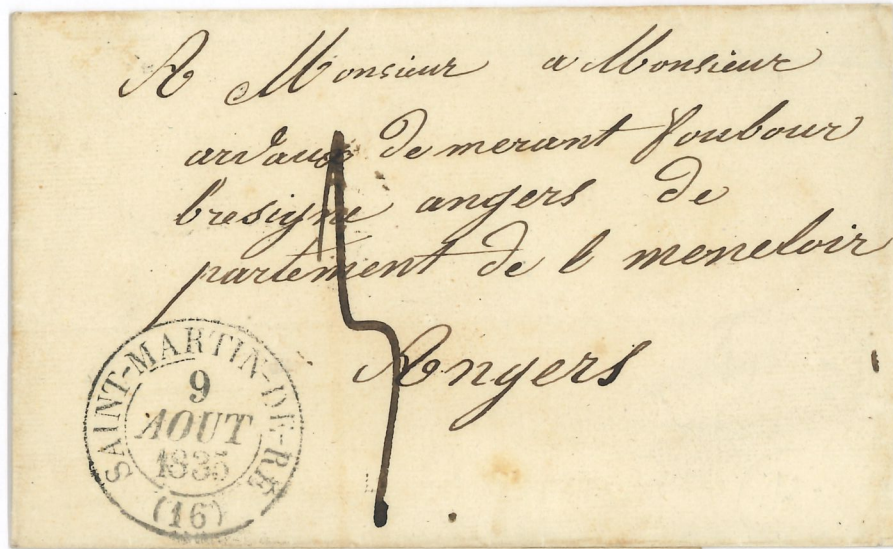 A Monsieur a Monsieur
ardaux de merant foubour
bresigne angers de
partement de l meneloir
Angers
SAINT-MARTIN-DE-RÉ
9
AOUT
1835
(16)